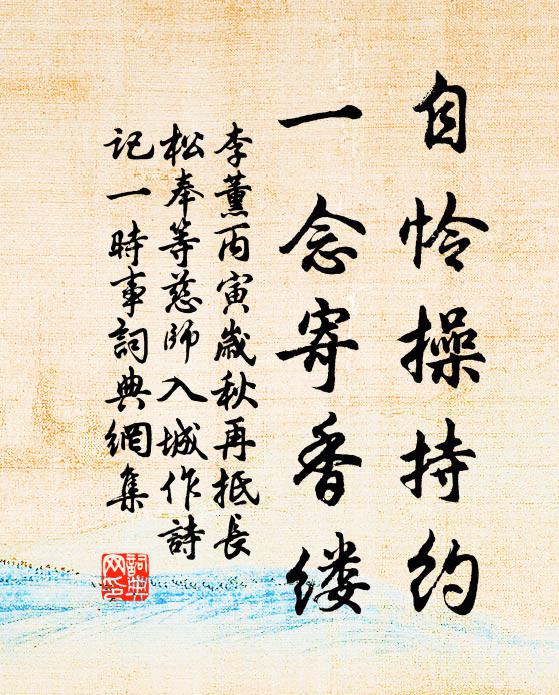 自怜操持约
一念寄香缕
李薰丙寅歲秋再抵長
松奉等慈師入城作詩
記一時事詞典網集
詞典
网印